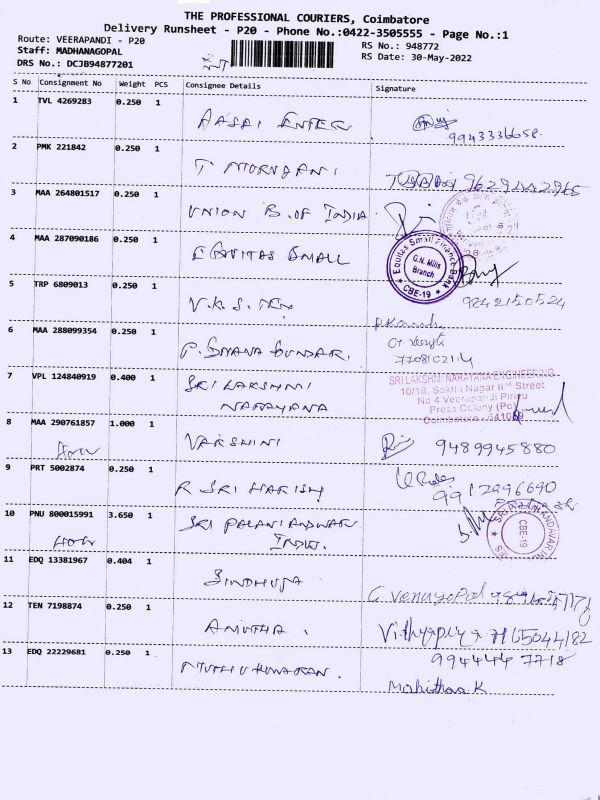 THE PROFESSIONAL COURIERS, Coimbatore
Delivery Runsheet - P20 - Phone No.:0422-3505555 - Page No.:1
Route: VEERAPANDI - P20
RS No.: 948772
Staff: MADHANAGOPAL
RS Date: 30-May-2022
DRS No.: DCJB94877201
S No Consignment No Weight PCS Consignee Details Signature
1 TVL 4269283 0.250 1 AASAI ENTER
9943336658
2 PMK 221842 0.250 1 T MORUGANI
3 MAA 264801517 0.250 1 UNION B.OF INDIA
4 MAA 287090186 0.250 1 EQUITAS SMALL
Equitas Small Finance Bank
G.N. Mills
Branch
CBE-19
5 TRP 6809013 0.250 1 V.K.S. TEX
9242150524
6 MAA 288099354 0.250 1 P. GNANA SUNDAR.
7 VPL 124840919 0.400 1 SRI LAKSHMI
NARAYANA
SRI LAKSHMI NARAYANA ENGINEERING
10/18, Sakthi Nagar IInd Street
No.4 Veerapandi Pirivu
Press Colony (Po)
Coimbatore - 641019
8 MAA 290761857 1.000 1 VARSHINI
9489945880
9 PRT 5002874 0.250 1 R SRI HARISH
9912996690
10 PNU 800015991 3.650 1 SRI PALANIANDAVAR
INDUS.
CBE-19
11 EDQ 13381967 0.404 1 SINDHUJA
C Venugopal
12 TEN 7198874 0.250 1 ANUTHA.
Vithyapiya
13 EDQ 22229681 0.250 1 MUTHUKUMARAN.
994444 7718